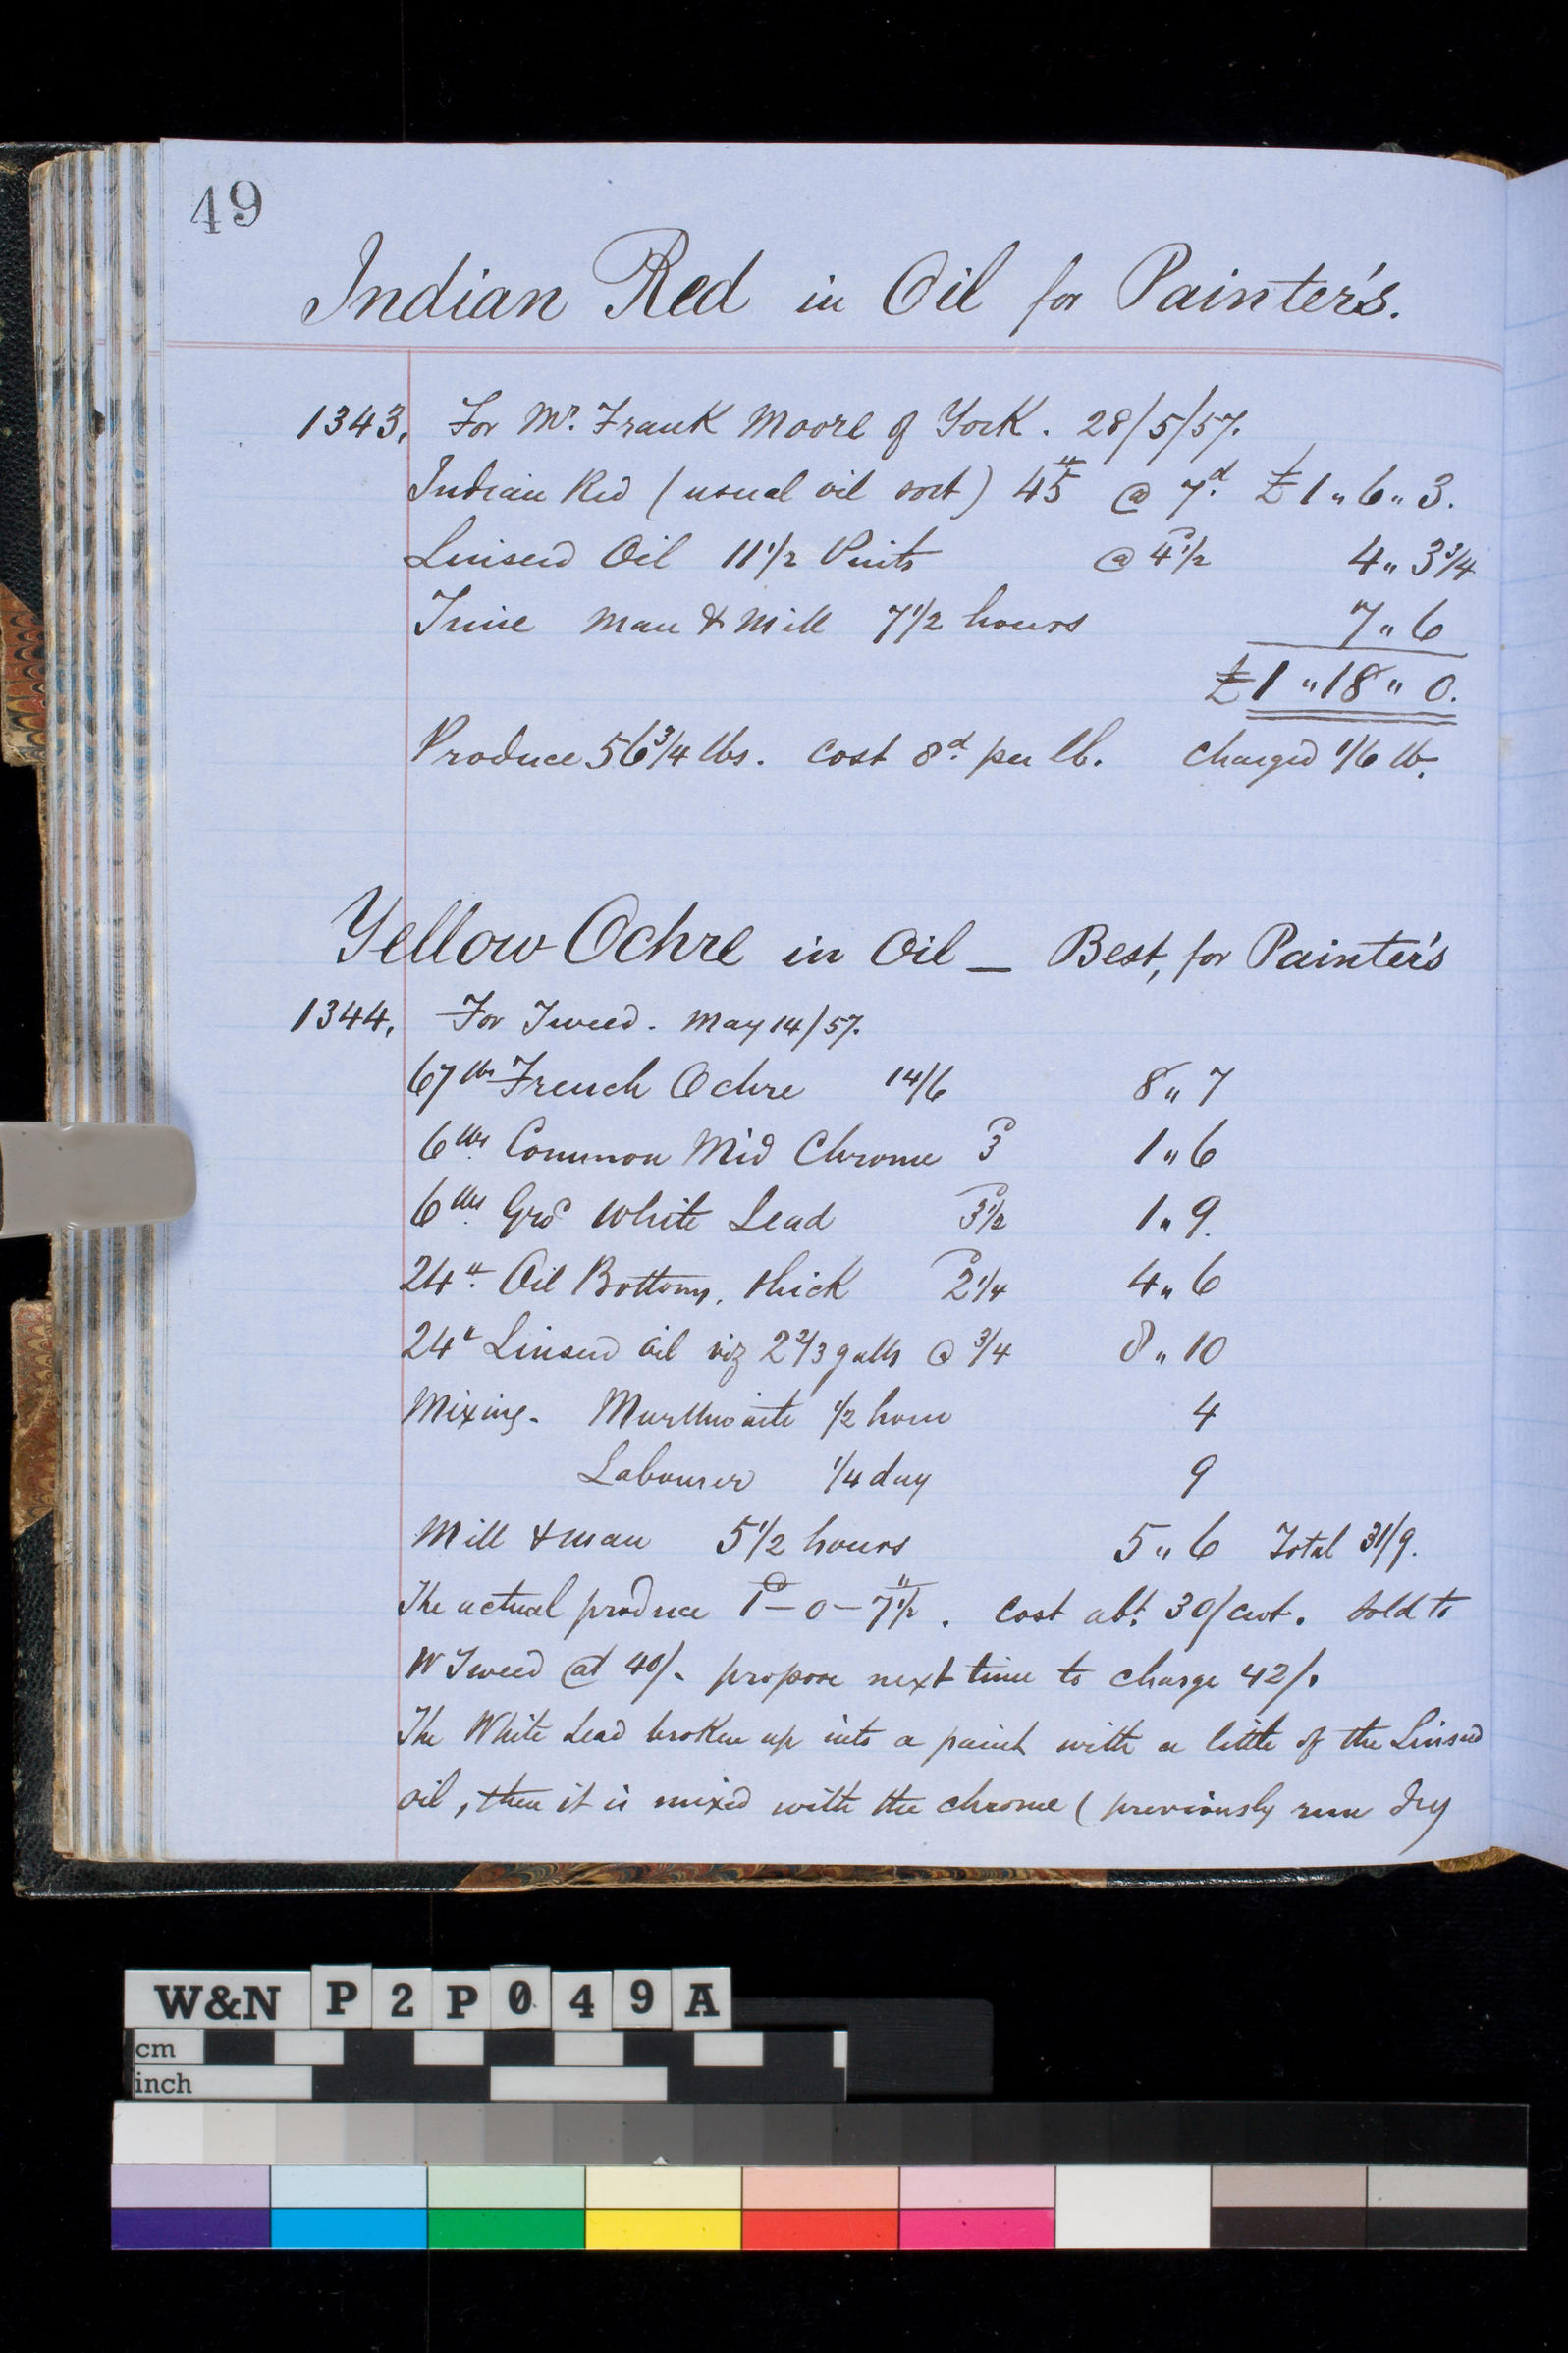 49
Indian Red in Oil for Painter's.
1343. For Mr. Frank Moore of York. 28/5/57.
Indian Red (usual oil sort) 45 lb @ 7d. £1 " 6 " 3.
Linseed Oil 11 1/2 Pints @ 4 1/2 4 " 3 3/4
Time Man & Mill 7 1/2 hours 7 " 6
£1 " 18 " 0.
Produce 56 3/4 lbs. Cost 8d. per lb. Charged 1/6 lb.
Yellow Ochre in Oil — Best, for Painter's
1344. For Tweed. May 14/57.
67 lbs French Ochre 14/6 8 " 7
6 lbs Common Mid Chrome 3 1 " 6
6 lbs Grd White Lead 3 1/2 1 " 9.
24 lb Oil Bottoms, thick 2 1/4 4 " 6
24 lb Linseed oil viz 2 2/3 galls @ 3/4 8 " 10
Mixing - 1/2 hour 4
Labourer 1/4 day 9
Mill & man 5 1/2 hours 5 " 6 Total 31/9.
The actual produce 1 - 0 - 7 1/2. Cost abt. 30/cwt. Sold to
W Tweed at 40/- propose next time to charge 42/.
The White Lead broken up into a paint with a little of the Linseed
oil, then it is mixed with the chrome (previously run dry
W&N P2P049A
cm
inch